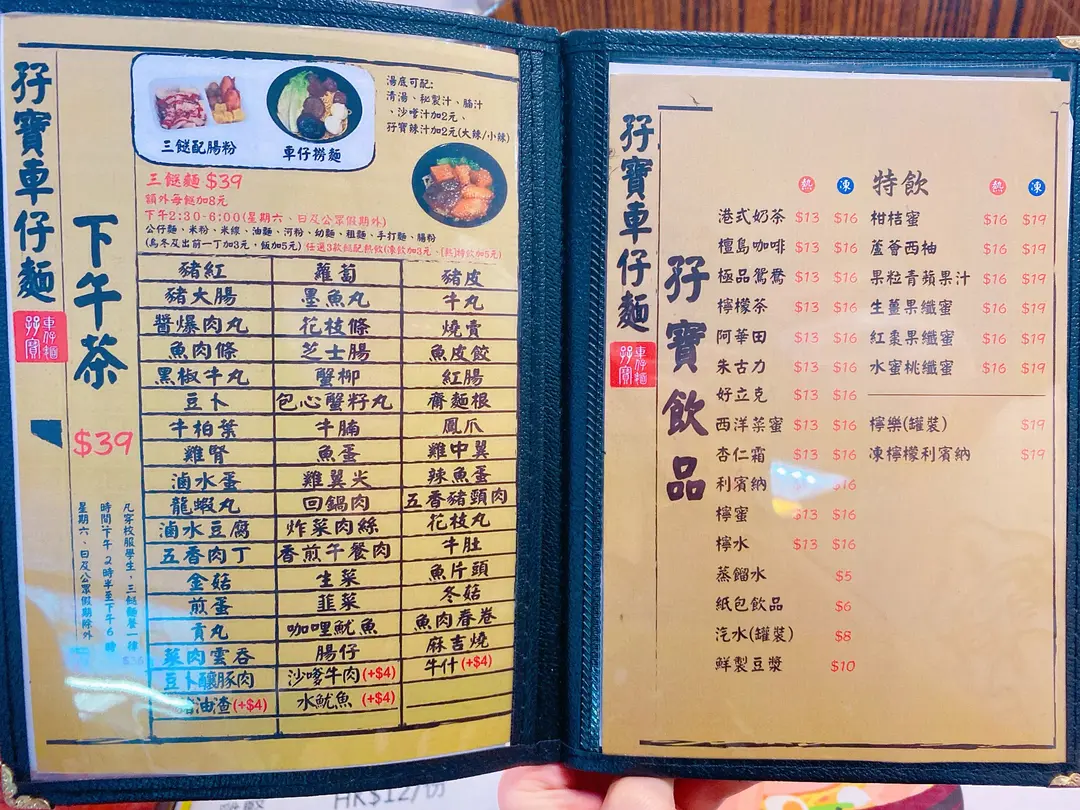 孖寶車仔麵
車仔麵
孖寶
下午茶
$39
凡穿校服學生，三餸麵餐一律
時間：下午 2時半至下午6 時
星期六、日及公眾假期除外
三餸配腸粉
車仔撈麵
湯底可配:
清湯、秘製汁、腩汁
、沙嗲汁加2元、
孖寶辣汁加2元(大辣/小辣)
三餸麵 $39
額外每餸加8元
下午2:30-6:00(星期六、日及公眾假期外)
公仔麵、米粉、米線、油麵、河粉、幼麵、粗麵、手打麵、腸粉
(烏冬及出前一丁加3元，飯加5元) 任選3款餸配熱飲(凍飲加3元、(熱)特飲加5元)
豬紅 蘿蔔 豬皮
豬大腸 墨魚丸 牛丸
醬爆肉丸 花枝條 燒賣
魚肉條 芝士腸 魚皮餃
黑椒牛丸 蟹柳 紅腸
豆卜 包心蟹籽丸 齋麵根
牛柏葉 牛腩 鳳爪
雞腎 魚蛋 雞中翼
滷水蛋 雞翼尖 辣魚蛋
龍蝦丸 回鍋肉 五香豬頸肉
滷水豆腐 炸菜肉絲 花枝丸
五香肉丁 香煎午餐肉 牛肚
金菇 生菜 魚片頭
煎蛋 韮菜 冬菇
貢丸 咖哩魷魚 魚肉春卷
菜肉雲吞 腸仔 麻吉燒
豆卜釀豚肉 沙嗲牛肉(+$4) 牛什(+$4)
油渣(+$4) 水魷魚 (+$4)
孖寶車仔麵
車仔麵
孖寶
孖寶飲品
熱 凍
港式奶茶 $13 $16
檀島咖啡 $13 $16
極品鴛鴦 $13 $16
檸檬茶 $13 $16
阿華田 $13 $16
朱古力 $13 $16
好立克 $13 $16
西洋菜蜜 $13 $16
杏仁霜 $13 $16
利賓納 $16
檸蜜 $13 $16
檸水 $13 $16
蒸餾水 $5
紙包飲品 $6
汽水(罐裝) $8
鮮製豆漿 $10
特飲 熱 凍
柑桔蜜 $16 $19
蘆薈西柚 $16 $19
果粒青蘋果汁 $16 $19
生薑果纖蜜 $16 $19
紅棗果纖蜜 $16 $19
水蜜桃纖蜜 $16 $19
檸樂(罐裝) $19
凍檸檬利賓納 $19
HK$12/份